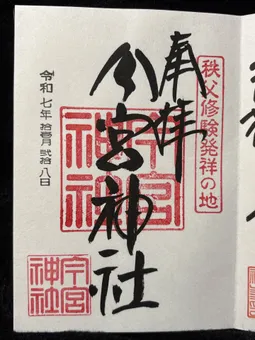 秩父修験発祥の地
奉拝
今宮神社
令和七年拾壱月弐拾八日
今宮
神社
今宮
神社